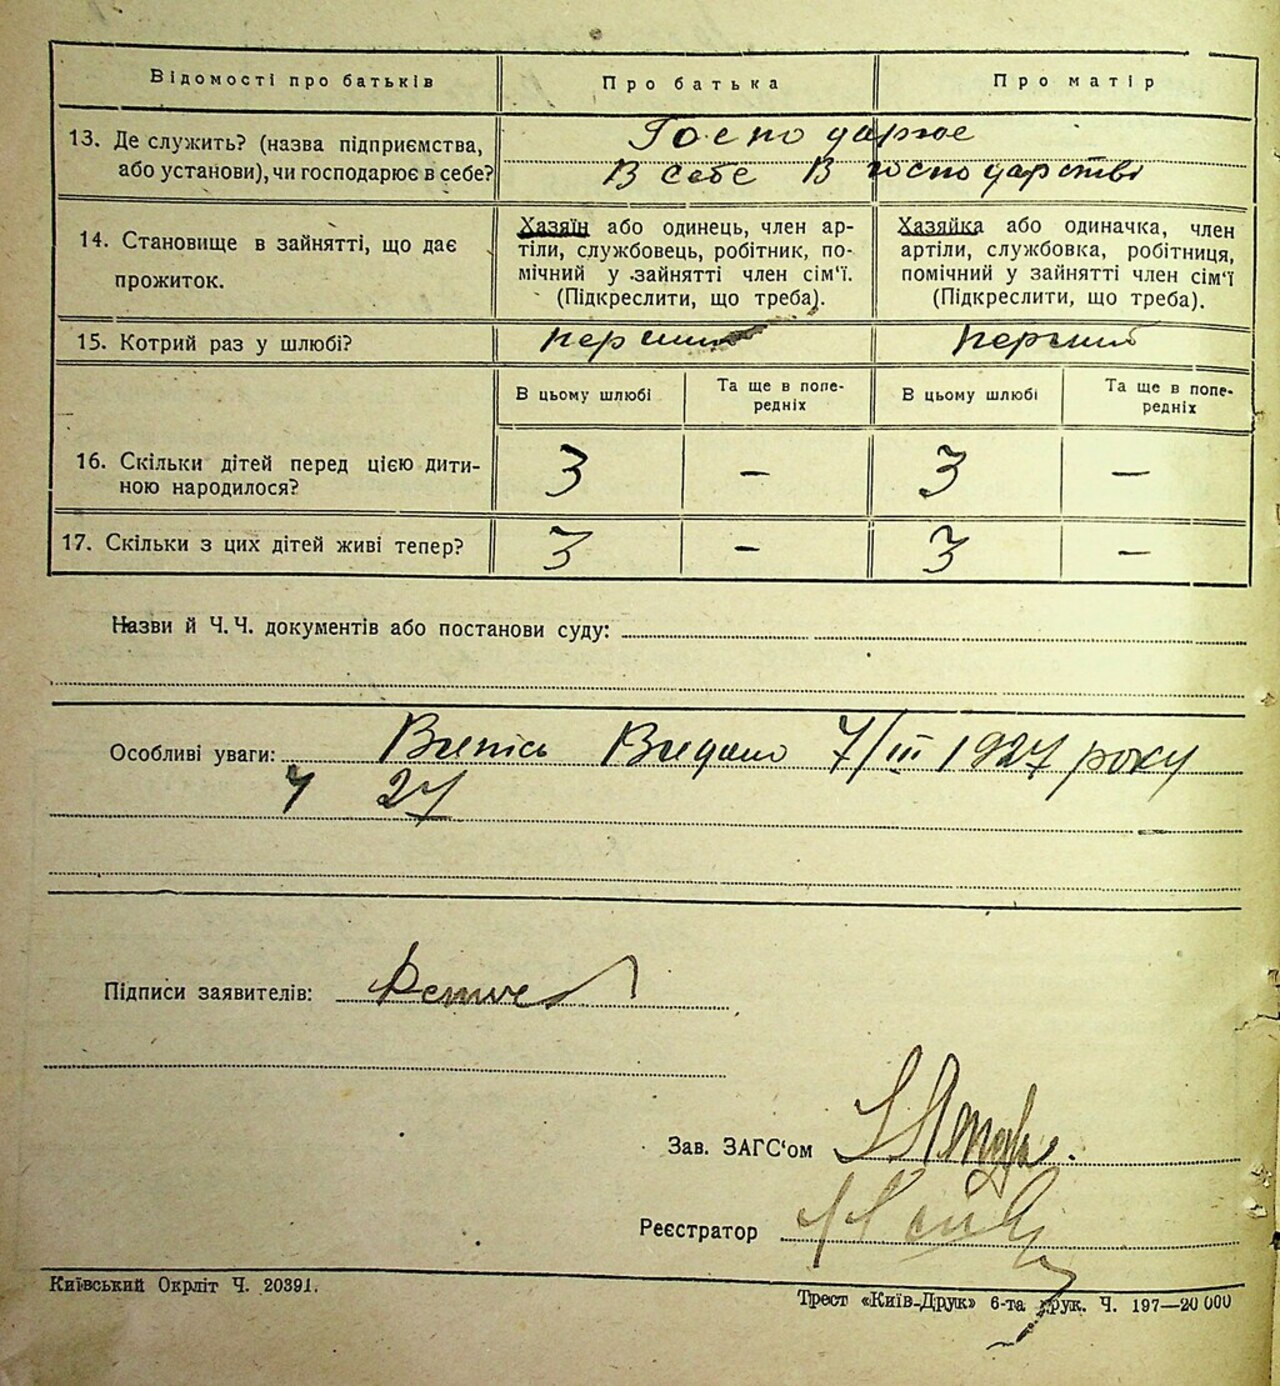 Відомості про батьків Про батька Про матір
13. Де служить? (назва підприємства, або установи), чи господарює в себе?
Господарює
В себе В господарстві
14. Становище в зайнятті, що дає прожиток.
Хазяїн або одинець, член ар-
тіли, службовець, робітник, по-
мічний у зайнятті член сім'ї.
(Підкреслити, що треба).
Хазяйка або одиначка, член
артіли, службовка, робітниця,
помічний у зайнятті член сім'ї
(Підкреслити, що треба).
15. Котрий раз у шлюбі? перший перший
В цьому шлюбі Та ще в попе-
редніх В цьому шлюбі Та ще в попе-
редніх
16. Скільки дітей перед цією дити-
ною народилося? 3 – 3 –
17. Скільки з цих дітей живі тепер? 3 – 3 –
Назви й Ч.Ч. документів або постанови суду:
Особливі уваги: Випись Видано 7/III 1927 року
Ч 27
Підписи заявителів:
Зав. ЗАГС'ом
Реєстратор
Київський Окрліт Ч. 20391.
Трест «Київ-Друк» 6-та друк. Ч. 197—20 000